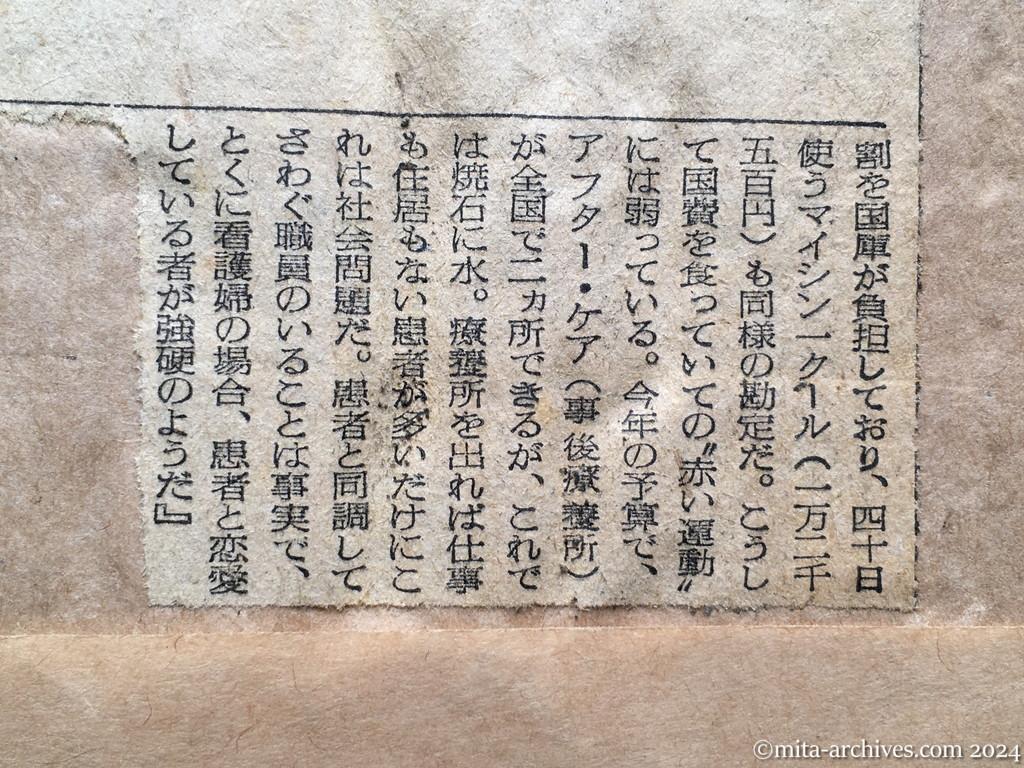 割を国庫が負担しており、四十日
使うマイシン一クール(一万二千
五百円)も同様の勘定だ。こうし
て国費を食っていての〝赤い運動〟
には弱っている。今年の予算で、
アフター・ケア(事後療養所)
が全国で二ヵ所できるが、これで
は焼石に水。療養所を出れば仕事
も住居もない患者が多いだけにこ
れは社会問題だ。患者と同調して
さわぐ職員のいることは事実で、
とくに看護婦の場合、患者と恋愛
している者が強硬のようだ』
©mita-archives.com 2024